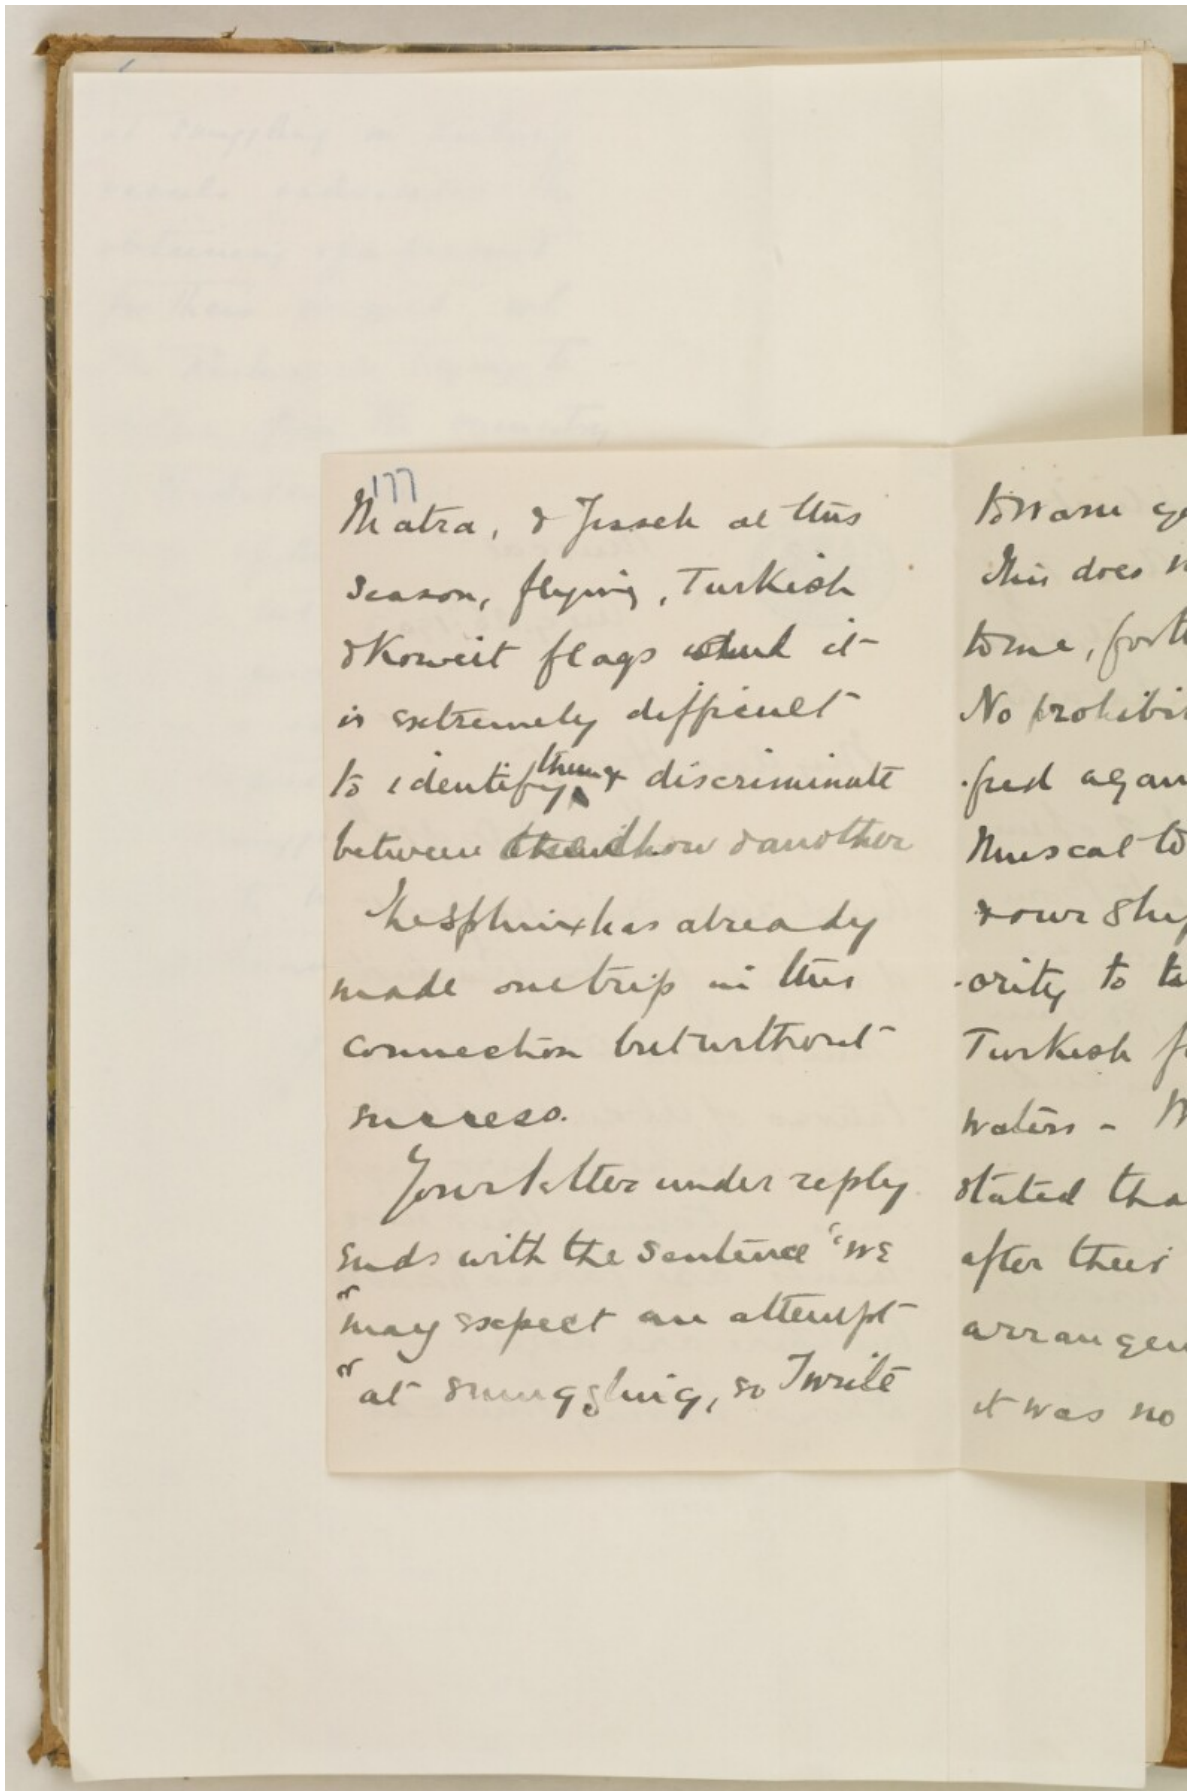 177
Matra, & Jissek at this
season, flying, Turkish
& Koweit flags it
is extremely difficult
to identify them & discriminate
between dhow & another
The Sphinx has already
made one trip in this
connection but without
success.
Your letter under reply
ends with the sentence "we
"may expect an attempt
"at smuggling, so I write
to warn
This does
to me, for
No prohibi
-ped again
Muscat to
& our ship
-ority to ta
Turkish f
waters - W
stated tha
after their
arrangem
it was no